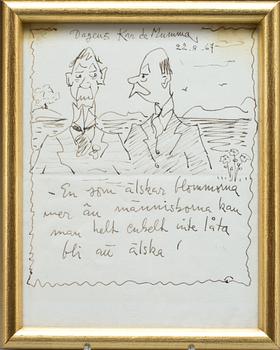 Dagens Kar de Mumma
22.9.67
- En som älskar blommorna
mer än människorna kan
man helt enkelt inte låta
bli att älska!